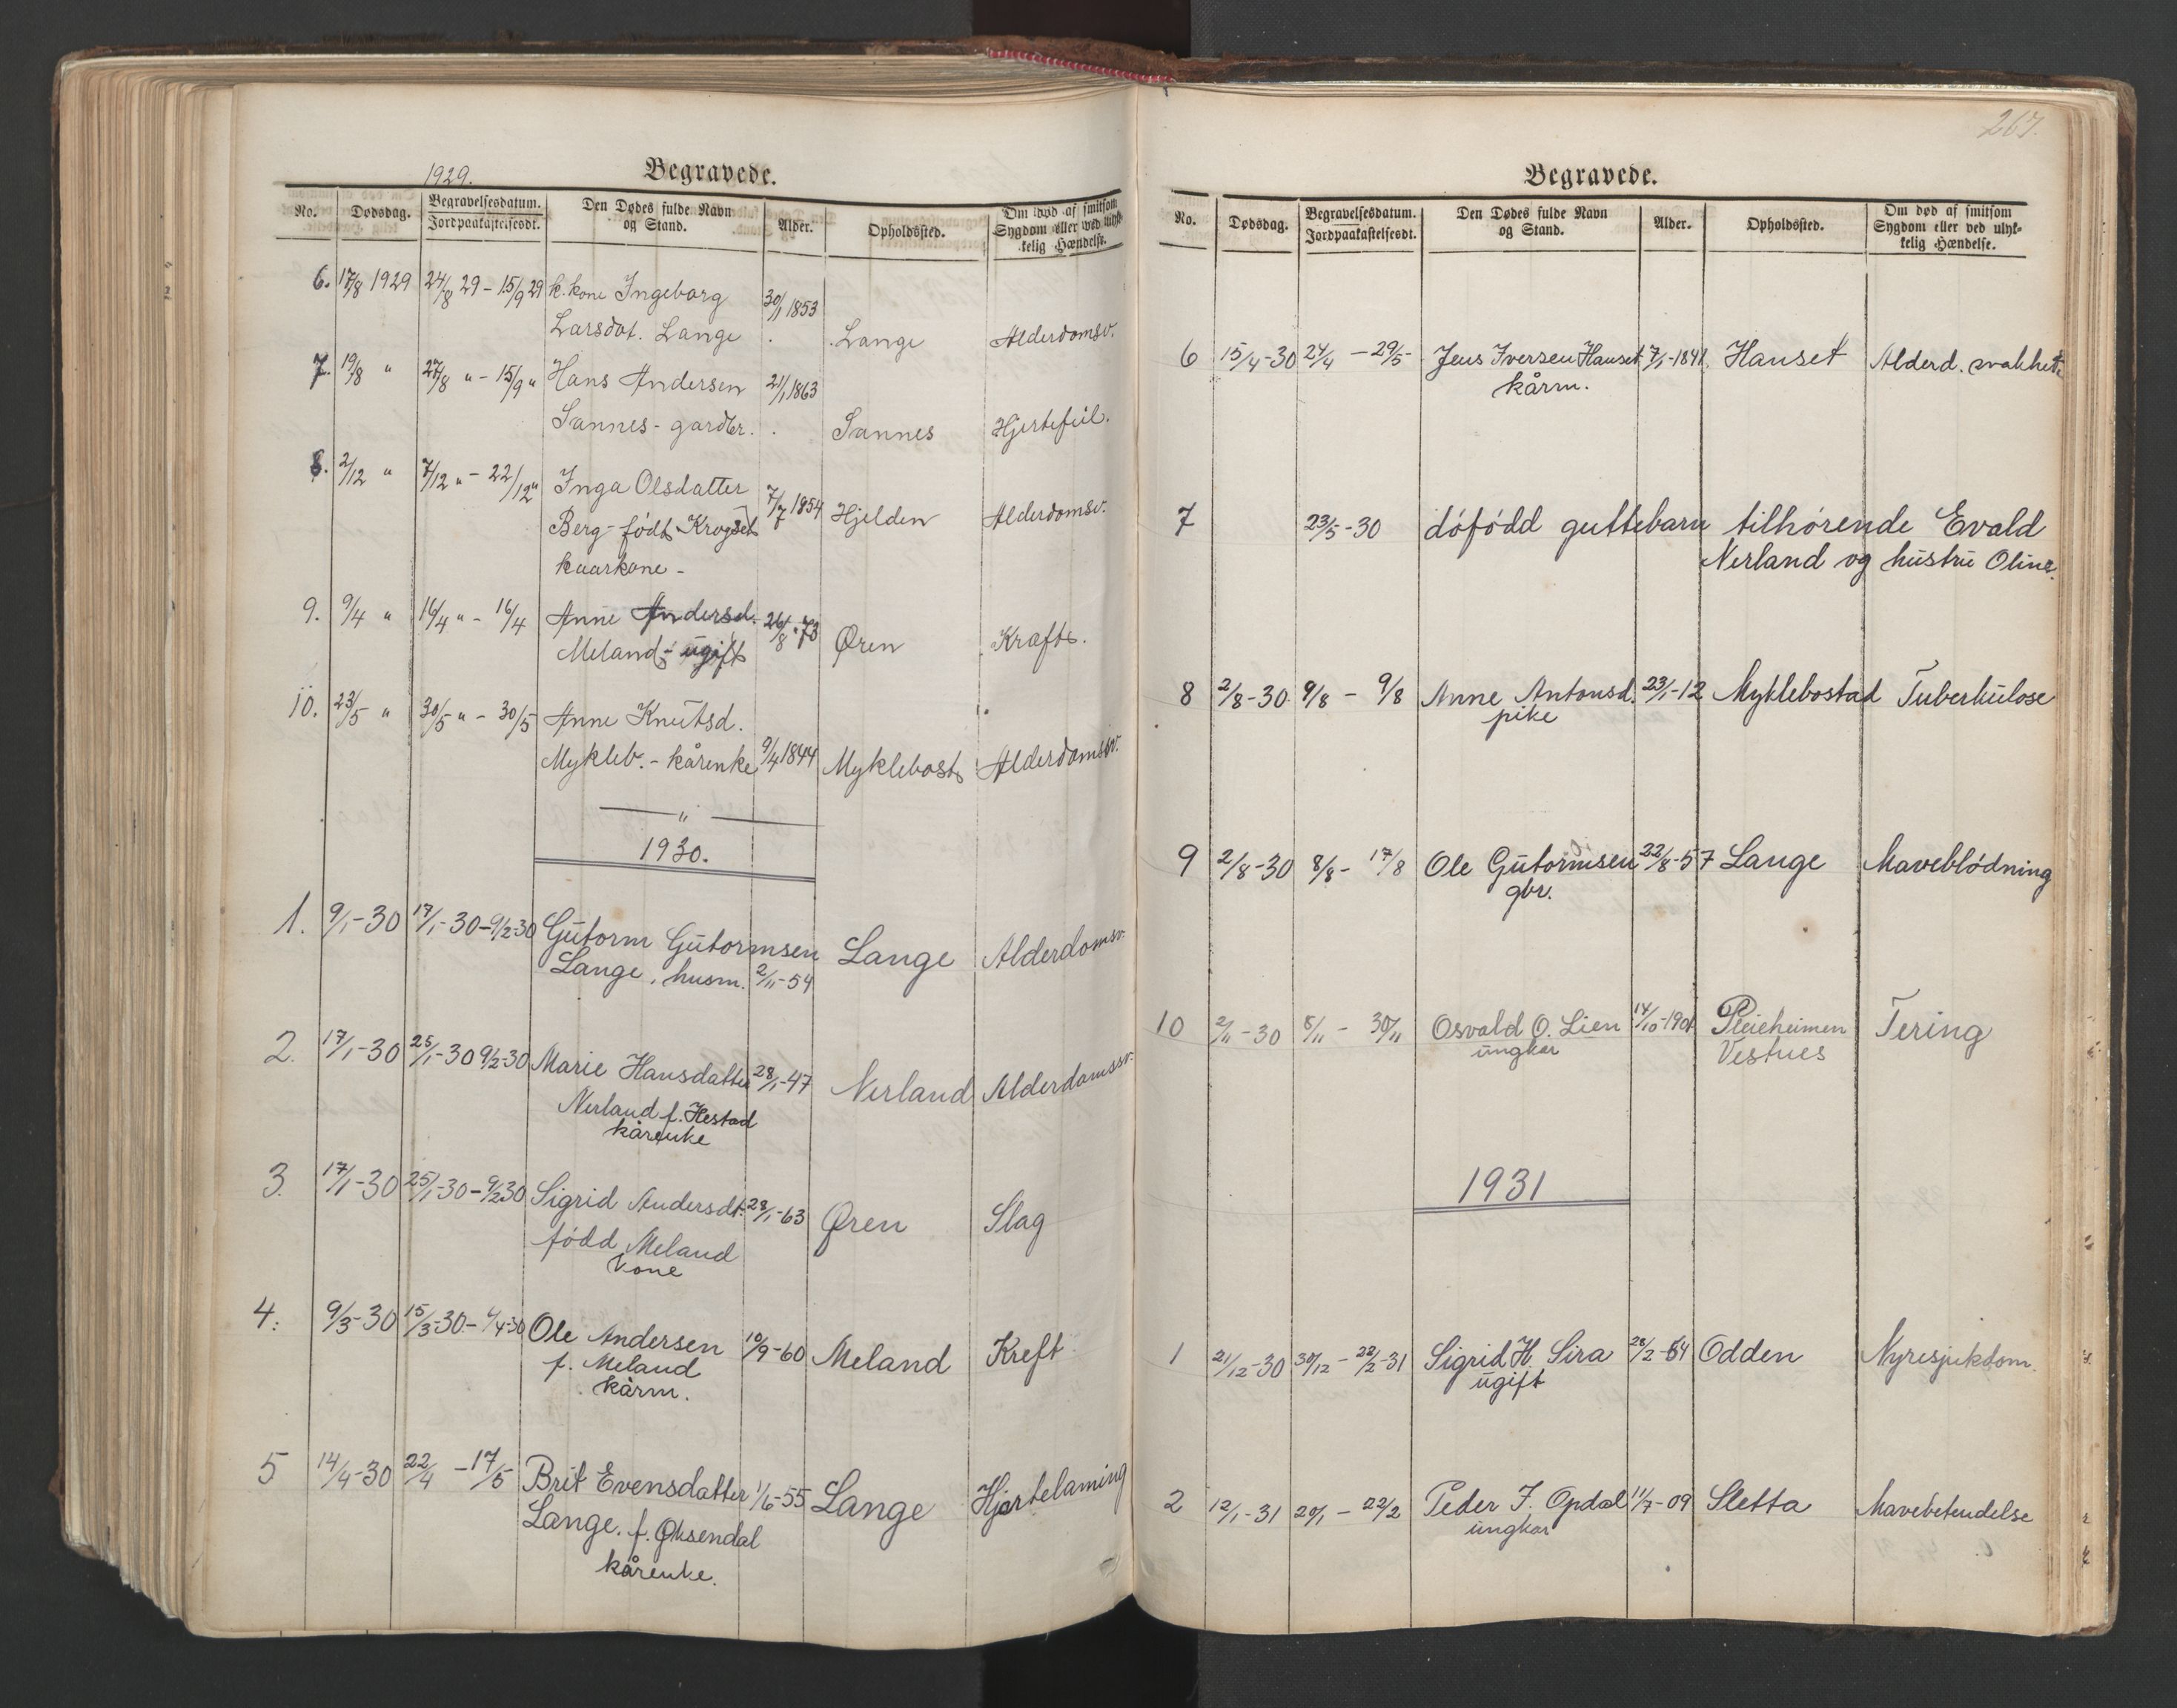 1929.
Begravede.
No. Dødsdag. Begravelsesdatum. Jordpaakastelsesdt. Den Dødes fulde Navn og Stand. Alder. Opholdssted. Om død af smitsom Sygdom eller ved ulyk-kelig Hændelse.
6. 17/8 1929 24/8 29 - 15/9 29 k. kone Ingeborg 30/1 1853
Larsdat. Lange Lange Alderdomsv.
7. 19/8 " 27/8 " - 15/9 " Hans Andersen 21/1 1863
Sannes - gardbr. Sannes Hjertefeil.
8. 2/12 " 7/12 " - 22/12 " Inga Olsdatter 7/7 1854
Berg - født Krogset Hjelden Alderdomsv.
kaarkone -
9. 9/4 " 16/4 " - 16/4 Anne Andersd. 26/8 - 73
Meland - ugift Øren Kræft.
10. 23/5 " 30/5 " - 30/5 Anne Knutsd.
Mykleb. - kårenke 9/4 1844 Myklebost Alderdomsv.
"
1930.
1. 9/1-30 17/1-30-9/2-30 Gutorm Gutormsen Lange Alderdomsv.
Lange, husm. 2/11-54
2. 17/1-30 25/1-30 9/2-30 Marie Hansdatter 28/1-47 Nerland Alderdomssv.
Nerland f. Hestad
kårenke
3. 17/1-30 25/1-30-9/2-30 Sigrid Andersdt. 28/1-63 Øren Slag
född Meland
kone
4. 9/3-30 15/3-30- /4-30 Ole Andersen 10/9-60 Meland Kreft
f. Meland
kårm.
5 14/4-30 22/4 - 17/5 Brit Evensdatter 1/6-55 Lange Hjertelaming
Lange. f. Øksendal
kårenke.
267.
Begravede.
No. Dødsdag. Begravelsesdatum. Jordpaakastelsesdt. Den Dødes fulde Navn og Stand. Alder. Opholdssted. Om død af smitsom Sygdom eller ved ulyk-kelig Hændelse.
6 15/4-30 24/4 - 29/5- Jens Iversen Hanset 7/1-1841 Hanset Alderd. svakhet.
kårm.
7 23/5-30 dófódd guttebarn tilhörende Evald
Nerland og hustru Oline.
8 2/8-30. 9/8 - 9/8 Anne Antonsd. 23/1-12 Myklebostad Tuberkulose
pike
9 2/8-30 8/8- 17/8 Ole Gutormsen 22/8-57 Lange Maveblödning
gbr.
10 2/11-30 8/11- 30/11 Osvald O. Lien 14/10-1901 Pleieheimen Tering
ungkar Vestnes
1931
1 21/12-30 30/12 - 22/2-31 Sigrid H. Sira 28/2-64 Odden Nyresjukdom.
ugift
2 12/1-31 20/1 - 22/2 Peder J. Opdøl 11/7-09 Sletta Mavebetendelse
ungkar